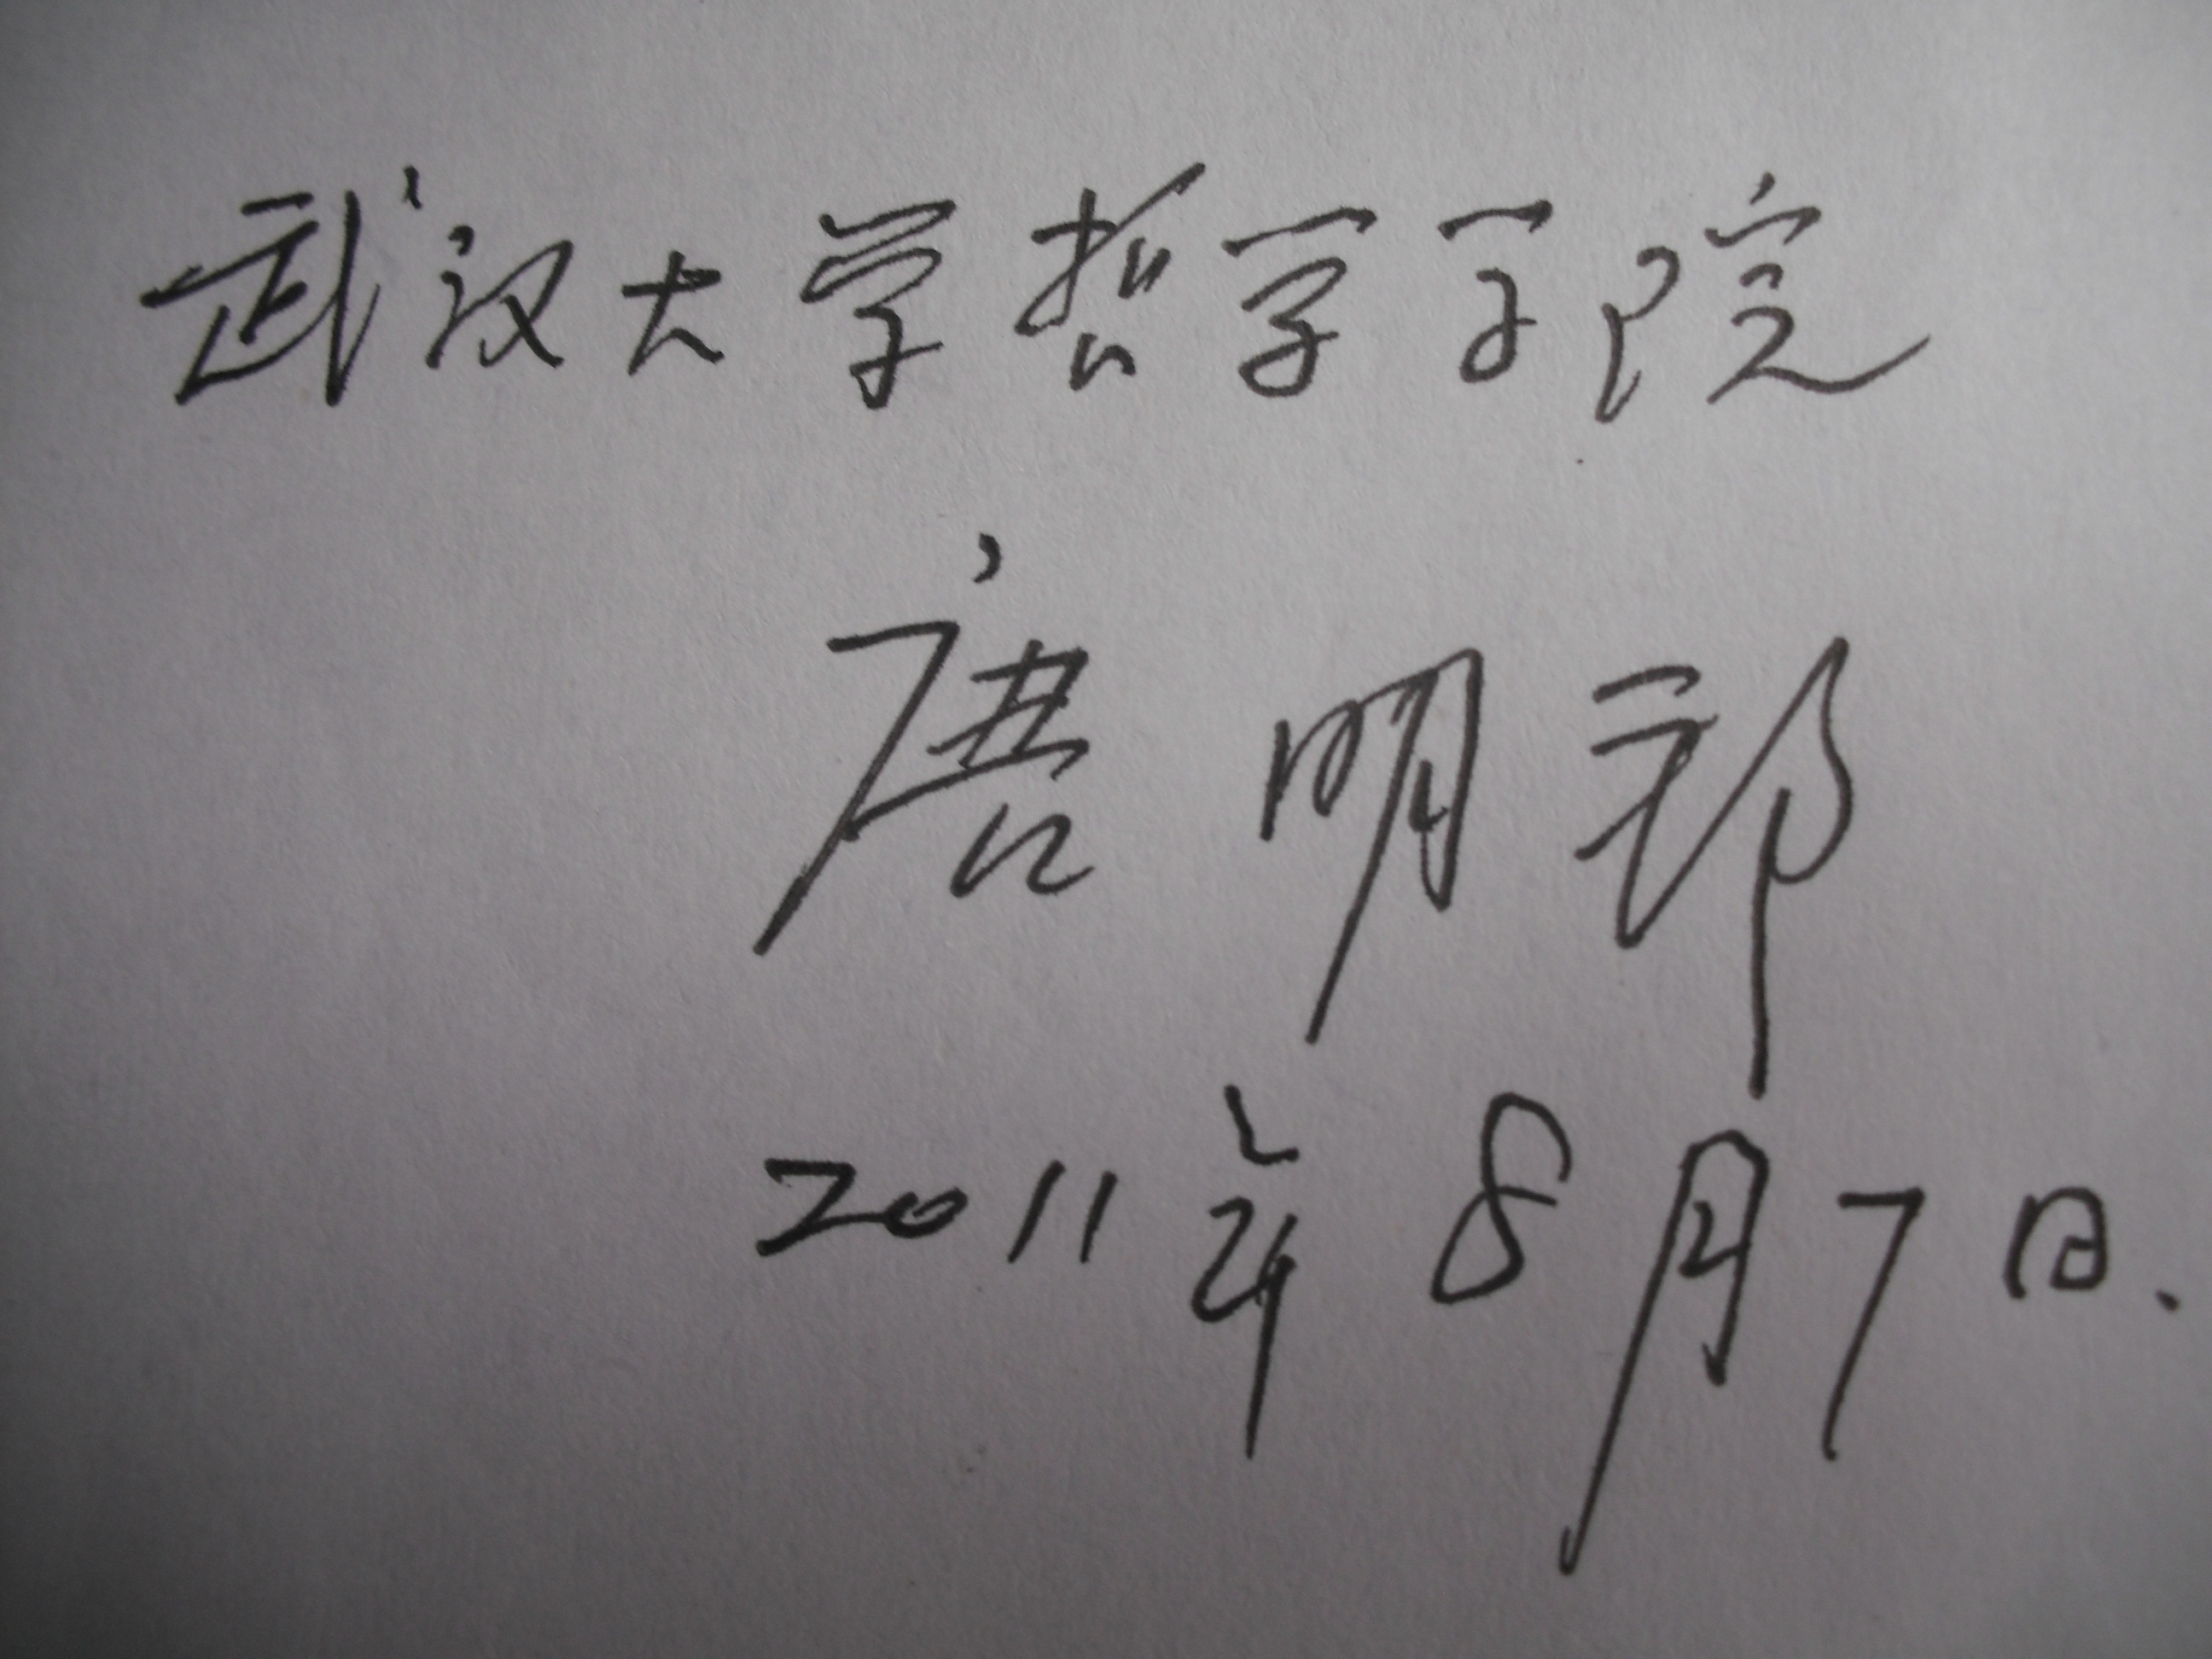 武汉大学哲学学院
唐明邦
2011年8月7日.